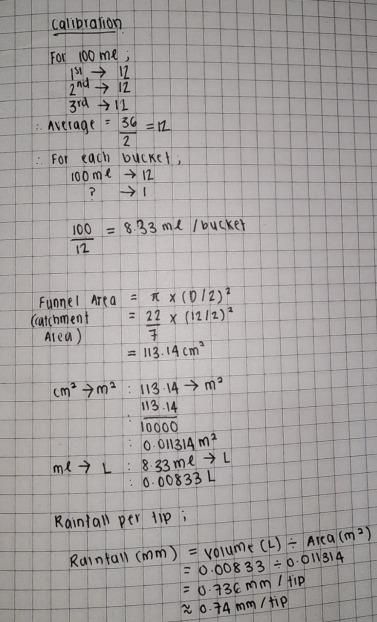 Calibration
For 100 mℓ ;
1st → 12
2nd → 12
3rd → 12
∴ Average = 36/2 = 12
∴ For each bucket,
100 mℓ → 12
? → 1
100/12 = 8.33 mℓ / bucket
Funnel Area = π × (D/2)²
(catchment = 22/7 × (12/2)²
Area)
= 113.14 cm²
cm² → m² : 113.14 → m²
: 113.14/10000
: 0.011314 m²
mℓ → L : 8.33 mℓ → L
: 0.00833 L
Rainfall per tip ;
Rainfall (mm) = volume (L) ÷ Area (m²)
= 0.00833 ÷ 0.011314
= 0.736 mm / tip
≈ 0.74 mm / tip